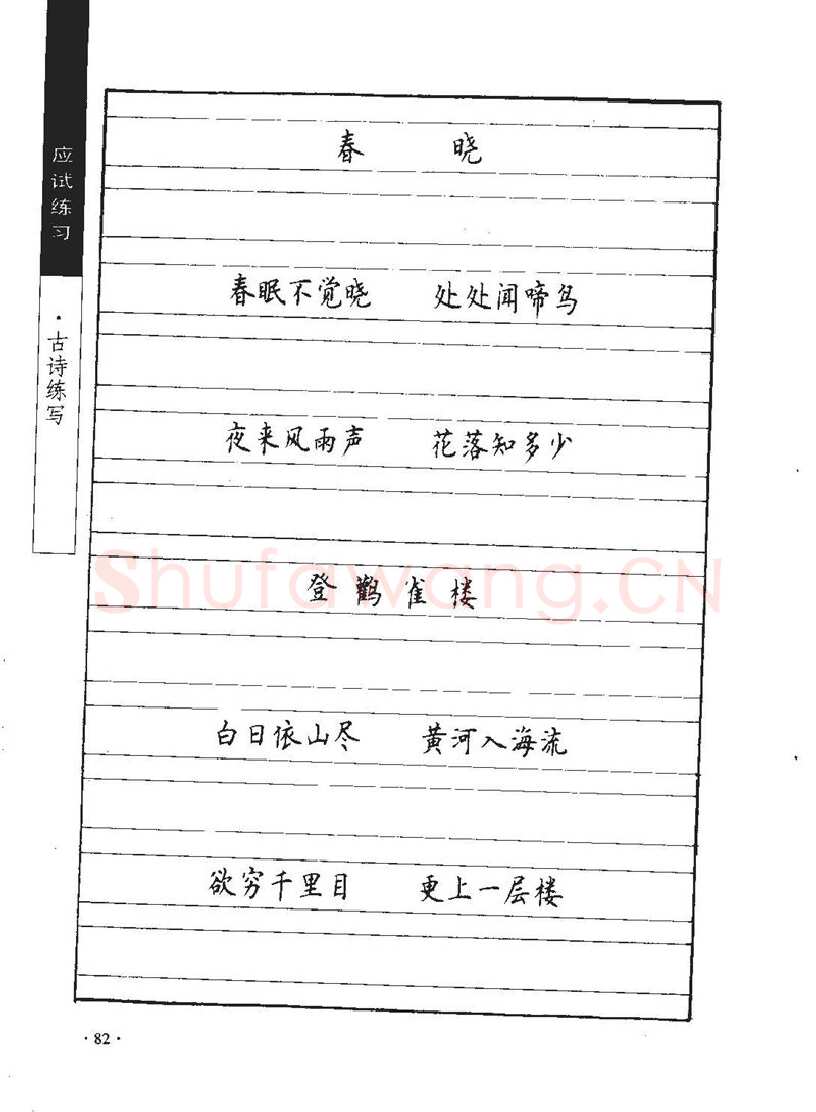 应试练习
·古诗练写
春 晓
春眠不觉晓 处处闻啼鸟
夜来风雨声 花落知多少
Shufawang.CN
登鹳雀楼
白日依山尽 黄河入海流
欲穷千里目 更上一层楼
·82·